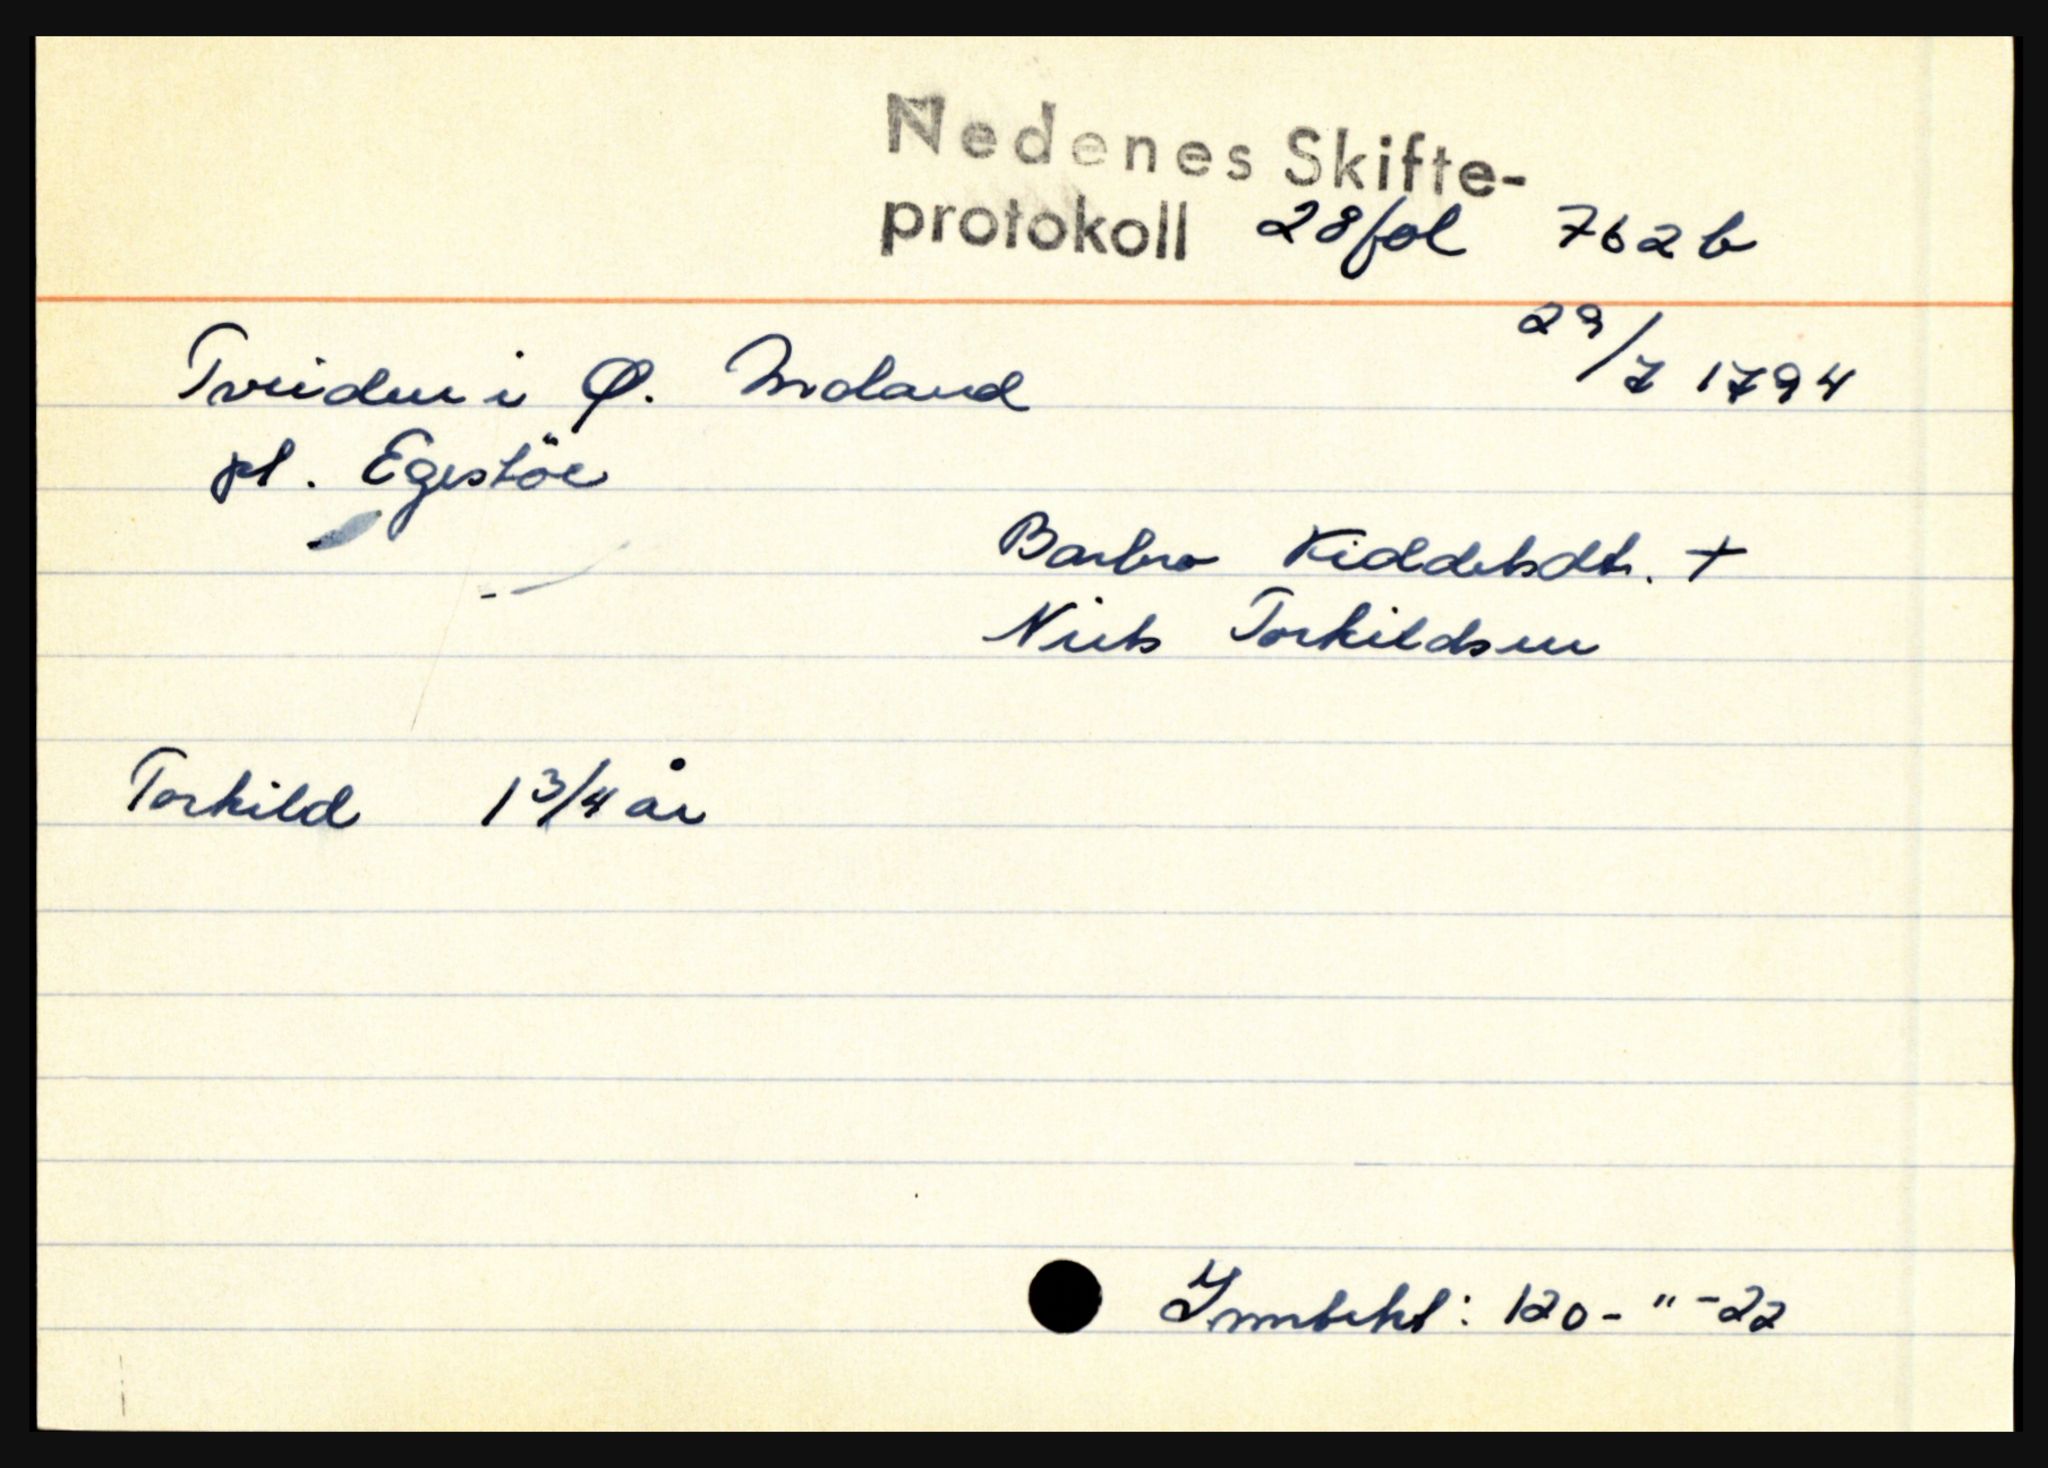 Nedenes Skifte-
protokoll 28 fol 762b
29/7 1794
Tveiden i Ø. Moland
pl. Egestöe
Barbro Kiddelsdtr. +
Niels Torkildsen
Torkild 1 3/4 år
Inntekt: 120 - " - 22